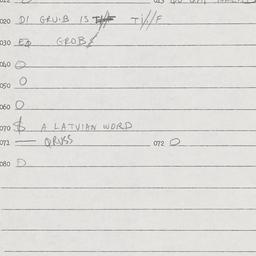 020 DI GRU·B IS TI//F
030 EQ GROB/
040 O
050 O
060 O
070 $ A LATVIAN WORD
071 — QRUSS 072 O
080 D